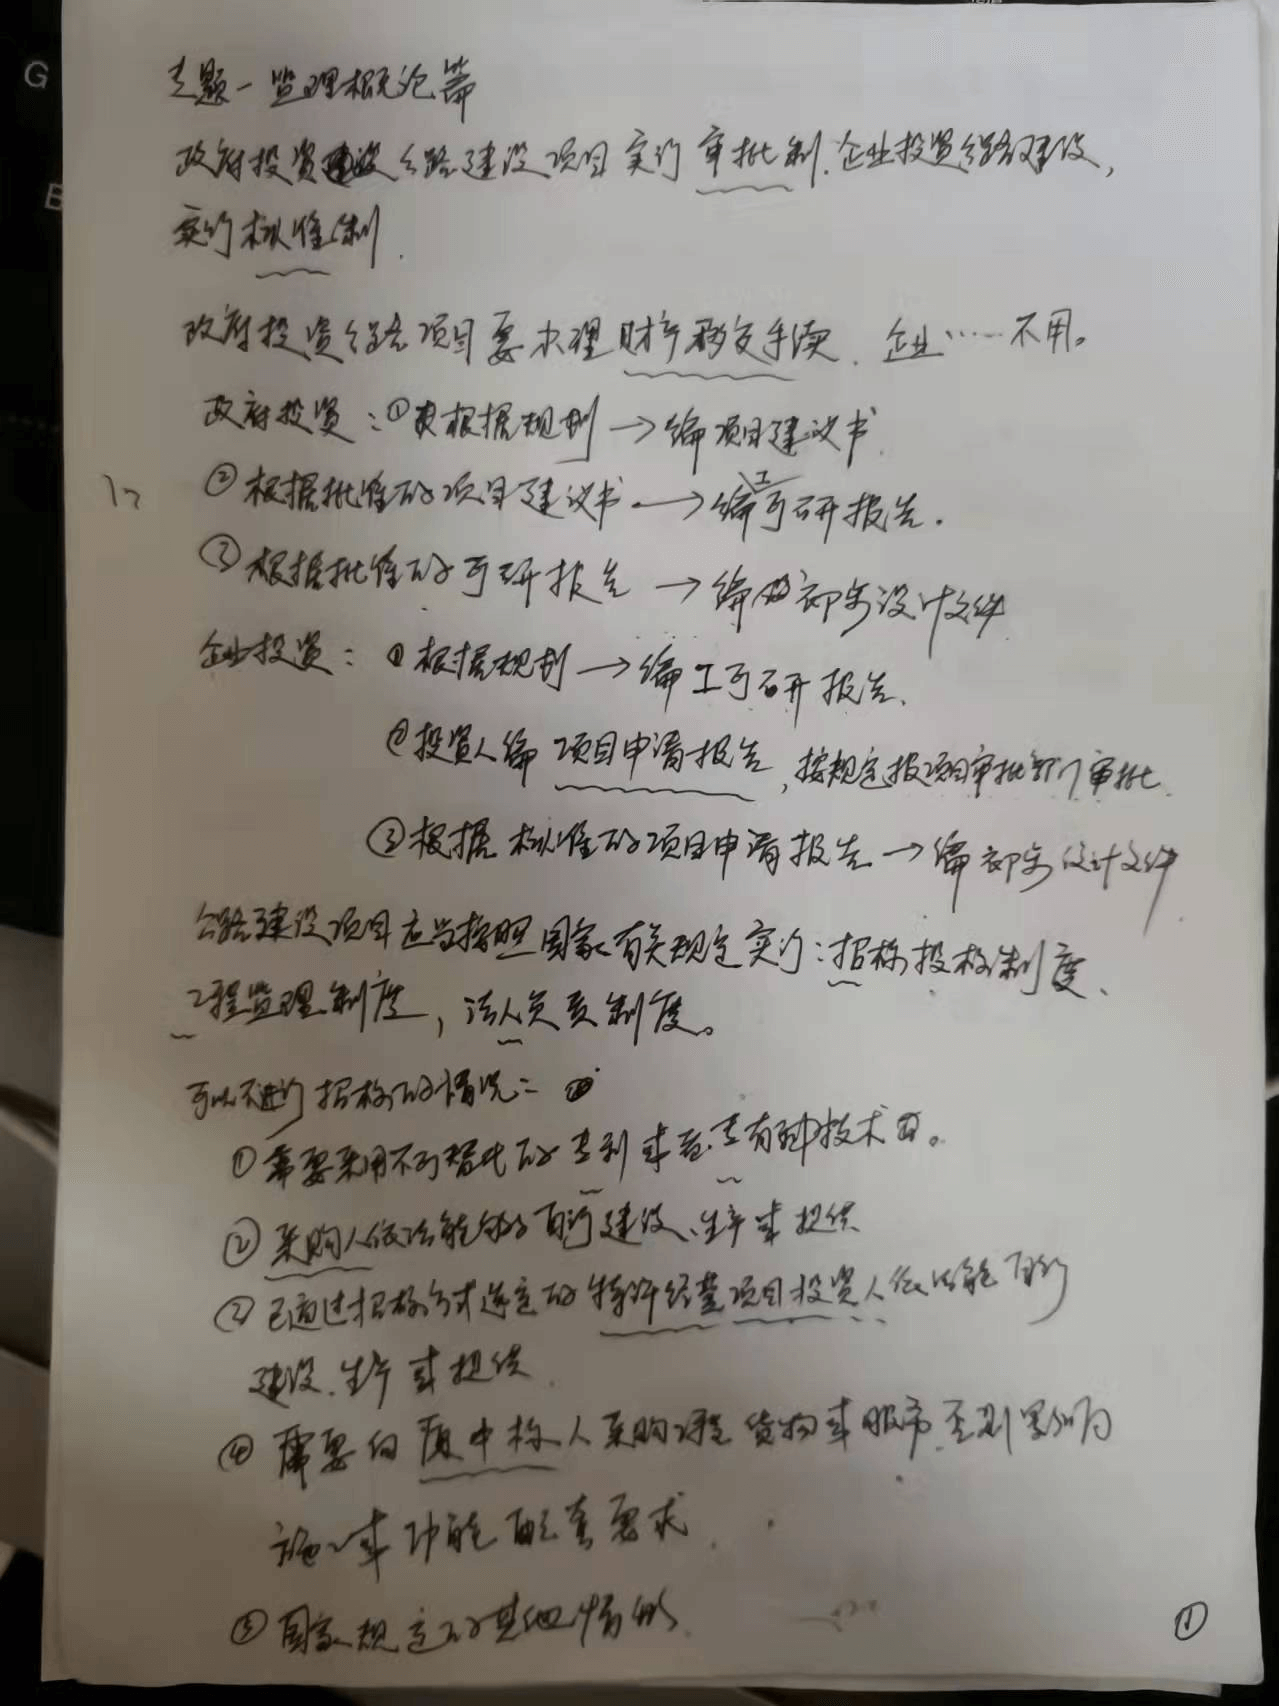 专题一 监理概论篇
政府投资公路建设项目实行审批制.企业投资公路建设,
实行核准制.
政府投资公路项目要办理财产移交手续. 企业……不用。
政府投资:①根据规划→编项目建议书.
②根据批准的项目建议书→编工可研报告.
③根据批准的可研报告→编初步设计文件
企业投资:①根据规划→编工可研报告.
②投资人编项目申请报告,按规定报项目审批部门审批.
③根据核准的项目申请报告→编初步设计文件
公路建设项目应当按照国家有关规定实行:招标投标制度、
工程监理制度,法人负责制度。
可以不进行招标的情况:
①需要采用不可替代的专利或者专有技术。
②采购人依法能够自行建设、生产或提供
③已通过招标方式选定的特许经营项目投资人依法能自行
建设.生产或提供.
④需要向原中标人采购工程货物或服务.否则影响
施工或功能配套要求.
⑤国家规定的其他情形.
①
G
B